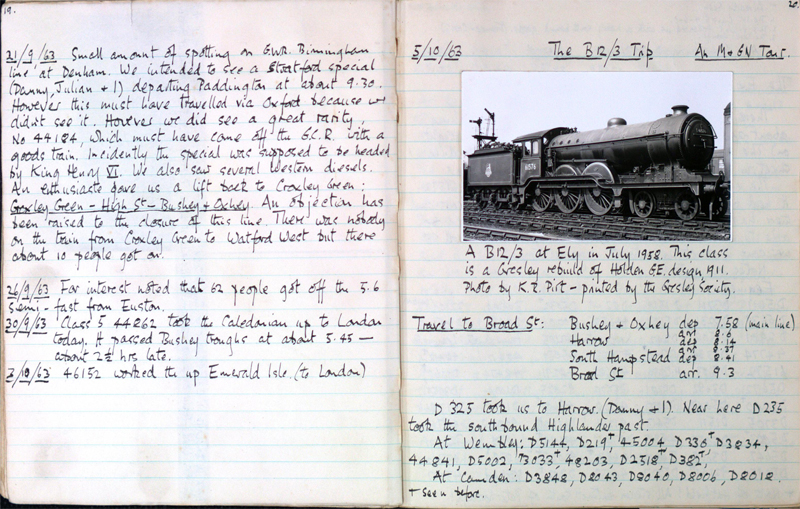 19.
21/9/63 Small amount of spotting on G.W.R. Birmingham
line at Denham. We intended to see a Stratford special
(Danny, Julian + I) departing Paddington at about 9.30.
However this must have travelled via Oxford because we
didn't see it. However we did see a great rarity,
No 44184, which must have come off the G.C.R. with a
goods train. Incidently the special was supposed to be headed
by King Henry VI. We also saw several Western diesels.
An enthusiaste gave us a lift back to Croxley Green:
Croxley Green - High St - Bushey & Oxhey. An objection has
been raised to the closure of this line. There was nobody
on the train from Croxley Green to Watford West but there
about 10 people got on.
26/9/63 For interest noted that 62 people got off the 5.6
Semi-fast from Euston.
30/9/63 Class 5 44262 took the Caledonian up to London
today. It passed Bushey troughs at about 5.45 —
about 2½ hrs late.
3/10/63 46152 worked the up Emerald Isle. (to London)
20.
5/10/63 The B12/3 Trip An M & GN Tour.
61576
A B12/3 at Ely in July 1958. This class
is a Gresley rebuild of Holden G.E. design 1911.
Photo by K.R. Pirt - printed by the Gresley Society.
Travel to Broad St: Bushey & Oxhey dep 7.58 (main line)
Harrow arr 8.6
dep 8.14
South Hampstead arr 8.37
dep 8.41
Broad St arr. 9.3
D 325 took us to Harrow. (Danny + I). Near here D 235
took the southbound Highlander past.
At Wembley: D5144, D219†, 45004, D336†, D3834,
44841, D5002, D3033†, 48203, D2518†, D382†,
At Camden: D3842, D8043, D8040, D8006, D8012.
† Seen before.